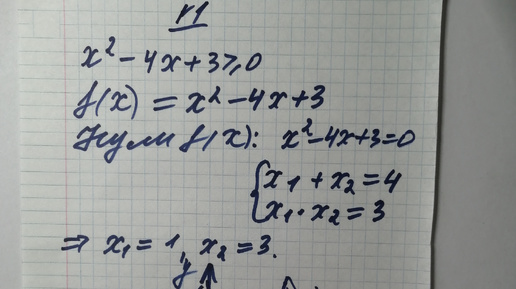 №1
x² - 4x + 3 ≥ 0
f(x) = x² - 4x + 3
Нули f(x): x² - 4x + 3 = 0
{ x₁ + x₂ = 4
x₁ · x₂ = 3
⇒ x₁ = 1, x₂ = 3.
y